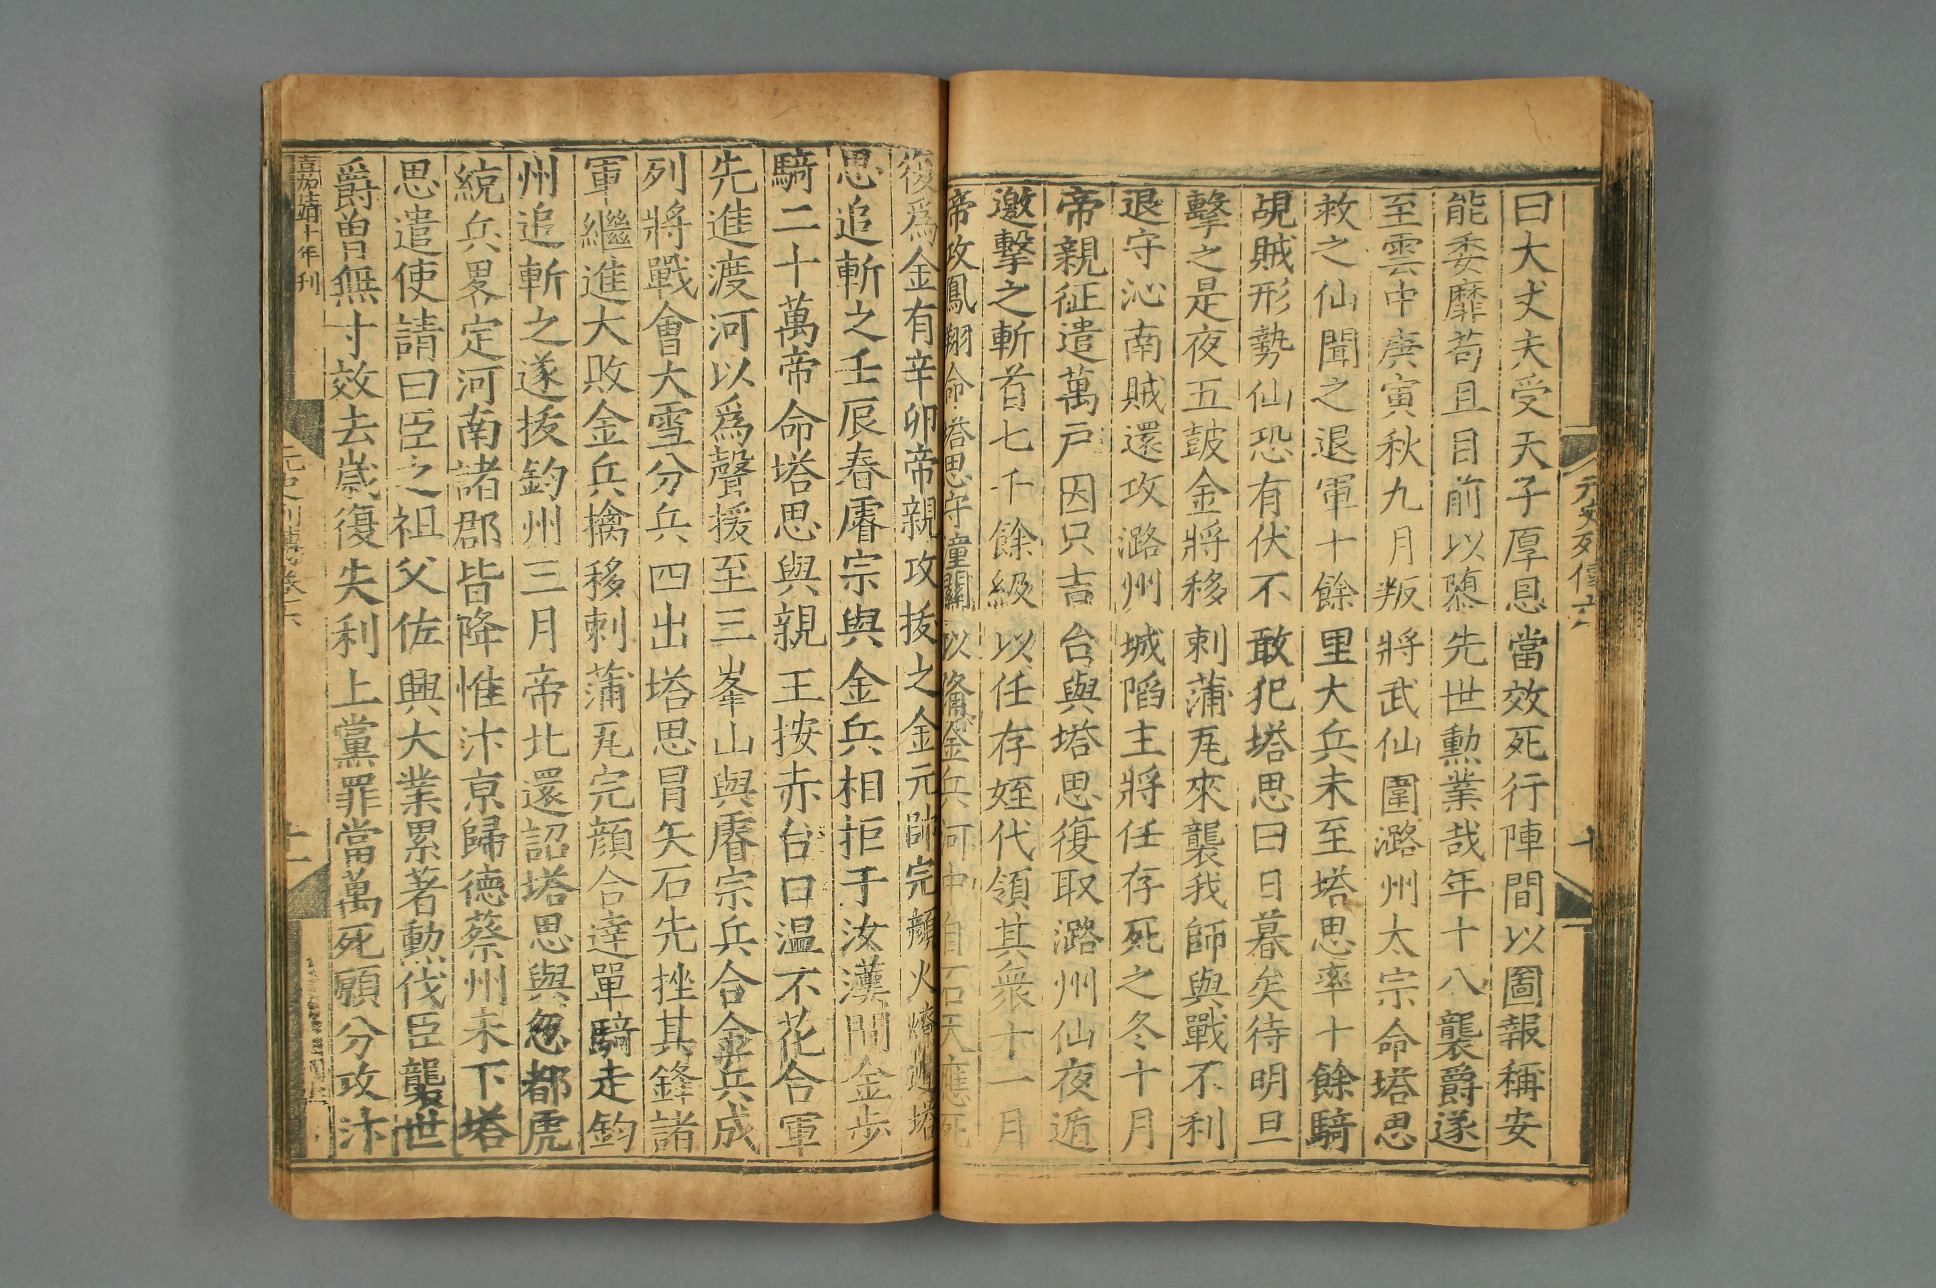 元史列傳六
十
曰大丈夫受天子厚恩當效死行陣間以圖報稱安
能委靡苟且目前以隳先世勲業哉年十八襲爵遂
至雲中庚寅秋九月叛將武仙圍潞州太宗命塔思
救之仙聞之退軍十餘里大兵未至塔思率十餘騎
覘賊形勢仙恐有伏不敢犯塔思曰日暮矣待明旦
擊之是夜五鼓金將移剌蒲瓦來襲我師與戰不利
退守沁南賊還攻潞州城陷主將任存死之冬十月
帝親征遣萬戸因只吉台與塔思復取潞州仙夜遁
邀擊之斬首七千餘級以任存姪代領其衆十一月
帝攻鳳翔命塔思守潼關以備金兵河中自石天應死
復爲金有辛卯帝親攻拔之金元帥完顔火燎遁塔
思追斬之壬辰春睿宗與金兵相拒于汝漢間金步
騎二十萬帝命塔思與親王按赤台口溫不花合軍
先進渡河以爲聲援至三峯山與睿宗兵合金兵成
列將戰會大雪分兵四出塔思冒矢石先挫其鋒諸
軍繼進大敗金兵擒移剌蒲瓦完顔合達單騎走鈞
州追斬之遂拔鈞州三月帝北還詔塔思與忽都虎
統兵畧定河南諸郡皆降惟汴京歸德蔡州未下塔
思遣使請曰臣之祖父佐興大業累著勲伐臣襲世
爵曽無寸效去歲復失利上黨罪當萬死願分攻汴
嘉靖十年刊
元史列傳卷六
十一